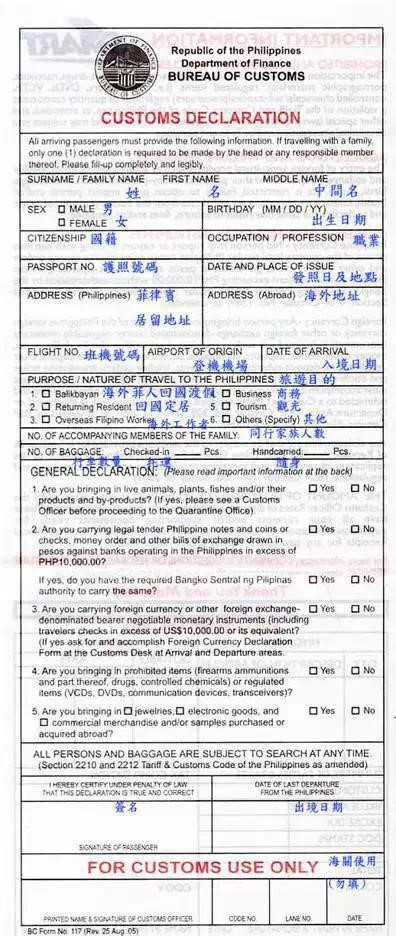 Republic of the Philippines
Department of Finance
BUREAU OF CUSTOMS
CUSTOMS DECLARATION
All arriving passengers must provide the following information. If travelling with a family,
only one (1) declaration is required to be made by the head or any responsible member
thereof. Please fill-up completely and legibly.
SURNAME / FAMILY NAME FIRST NAME MIDDLE NAME
姓 名 中間名
SEX MALE 男 BIRTHDAY (MM / DD / YY)
FEMALE 女 出生日期
CITIZENSHIP 國籍 OCCUPATION / PROFESSION 職業
PASSPORT NO. 護照號碼 DATE AND PLACE OF ISSUE
發照日及地點
ADDRESS (Philippines) 菲律賓 ADDRESS (Abroad) 海外地址
居留地址
FLIGHT NO. 班機號碼 AIRPORT OF ORIGIN DATE OF ARRIVAL
登機機場 入境日期
PURPOSE / NATURE OF TRAVEL TO THE PHILIPPINES 旅遊目的
1. Balikbayan 海外菲人回國渡假 4. Business 商務
2. Returning Resident 回國定居 5. Tourism 觀光
3. Overseas Filipino Worker 海外工作者 6. Others (Specify) 其他
NO. OF ACCOMPANYING MEMBERS OF THE FAMILY: 同行家族人數
NO. OF BAGGAGE: Checked-in Pcs. Handcarried: Pcs.
行李數量 託運 隨身
GENERAL DECLARATION: (Please read important information at the back)
1. Are you bringing in live animals, plants, fishes and/or their Yes No
products and by-products? (If yes, please see a Customs
Officer before proceeding to the Quarantine Office)
2. Are you carrying legal tender Philippine notes and coins or Yes No
checks, money order and other bills of exchange drawn in
pesos against banks operating in the Philippines in excess of
PHP10,000.00?
If yes, do you have the required Bangko Sentral ng Pilipinas Yes No
authority to carry the same?
3. Are you carrying foreign currency or other foreign exchange- Yes No
denominated bearer negotiable monetary instruments (including
travelers checks in excess of US$10,000.00 or its equivalent?
(If yes ask for and accomplish Foreign Currency Declaration
Form at the Customs Desk at Arrival and Departure areas.
4. Are you bringing in prohibited items (firearms ammunitions Yes No
and part thereof, drugs, controlled chemicals) or regulated
items (VCDs, DVDs, communication devices, transceivers)?
5. Are you bringing in jewelries, electronic goods, and Yes No
commercial merchandise and/or samples purchased or
acquired abroad?
ALL PERSONS AND BAGGAGE ARE SUBJECT TO SEARCH AT ANY TIME.
(Section 2210 and 2212 Tariff & Customs Code of the Philippines as amended)
I HEREBY CERTIFY UNDER PENALTY OF LAW DATE OF LAST DEPARTURE
THAT THIS DECLARATION IS TRUE AND CORRECT FROM THE PHILIPPINES
簽名 出境日期
SIGNATURE OF PASSENGER
FOR CUSTOMS USE ONLY 海關使用
(勿填)
PRINTED NAME & SIGNATURE OF CUSTOMS OFFICER CODE NO. LANE NO. DATE
BC Form No. 117 (Rev. 25 Aug. 05)